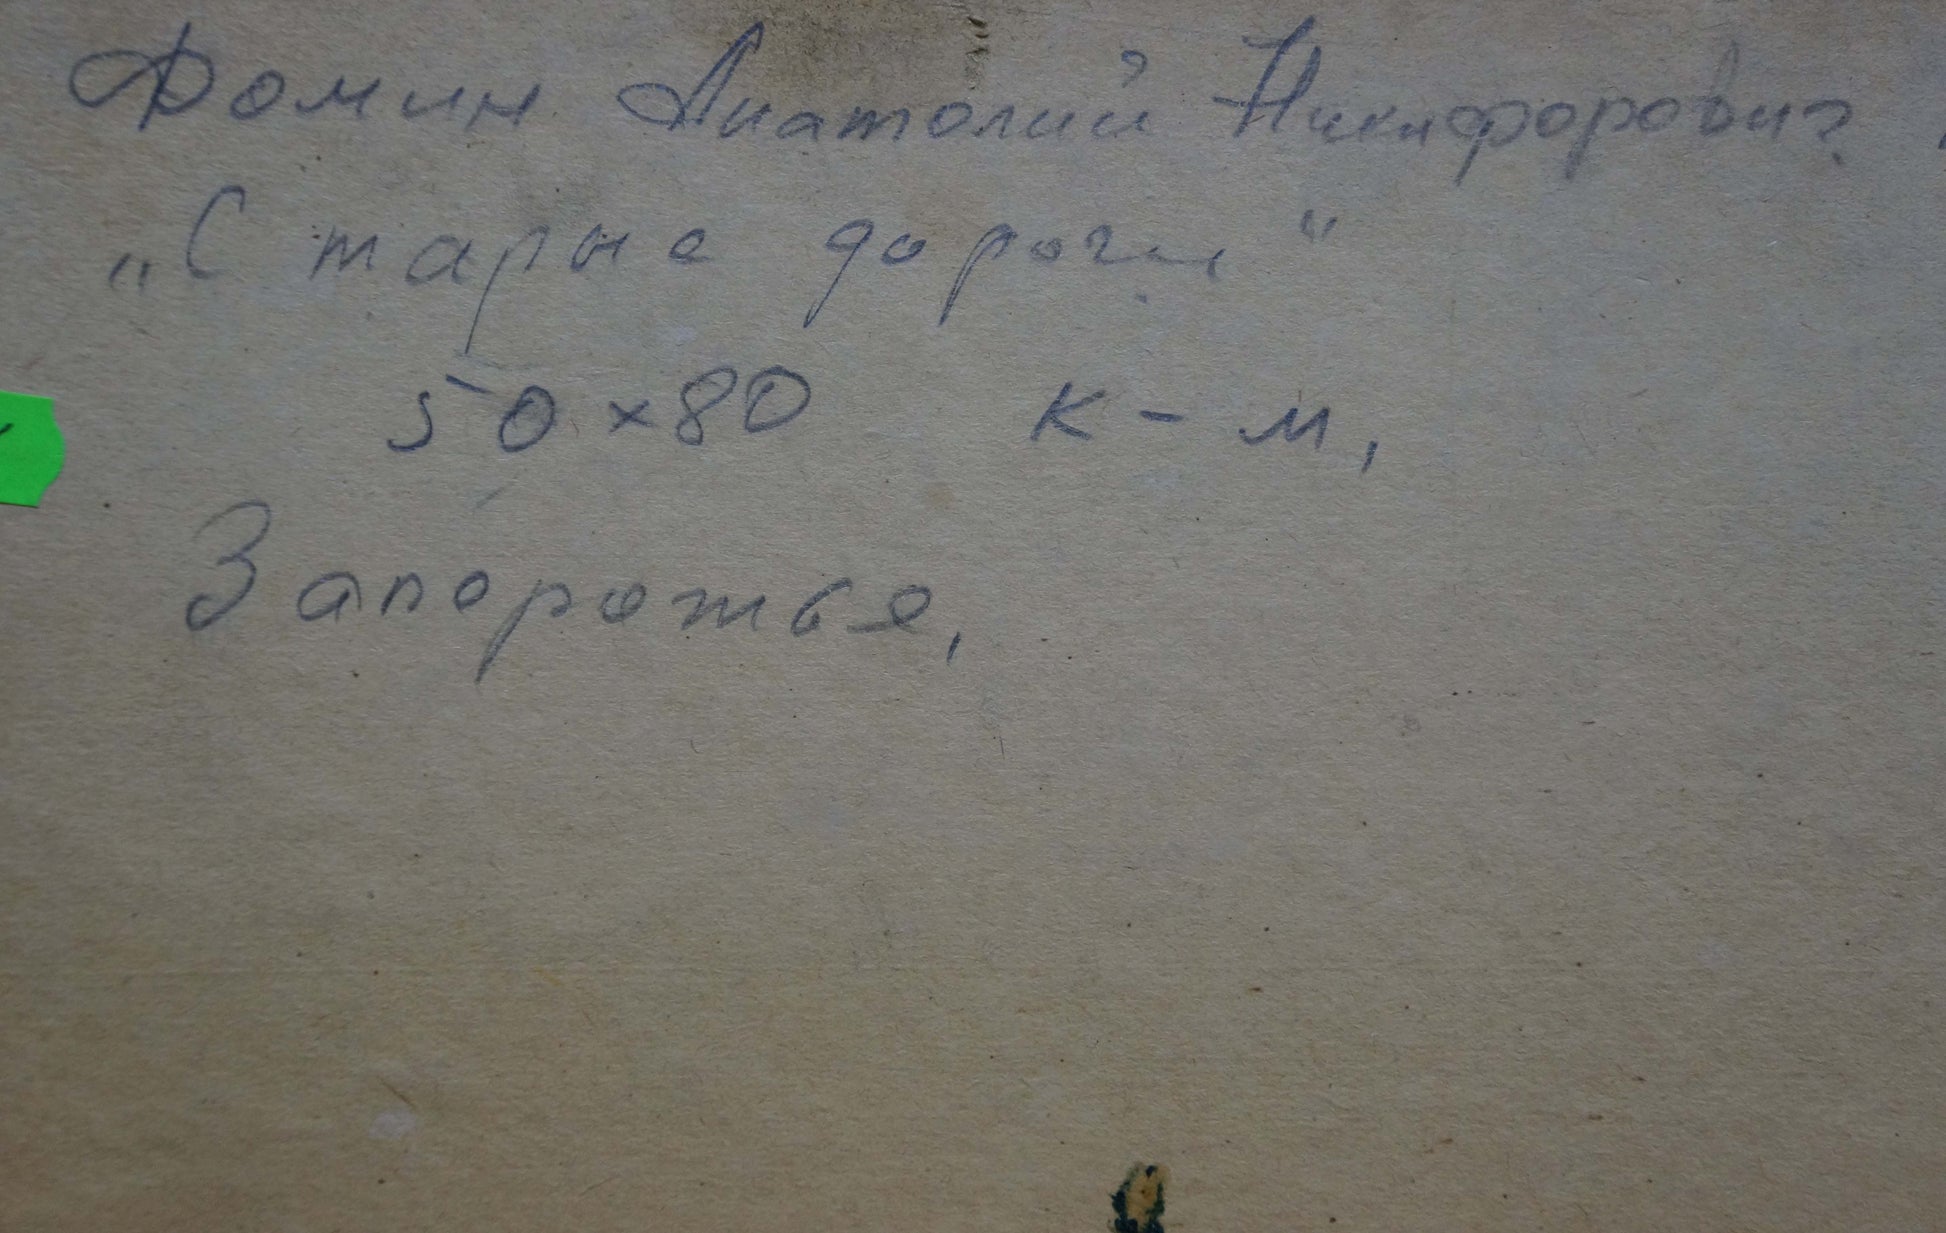 Фомин Анатолий Никифорович.
„Старые дороги"
50 × 80 к - м,
Запорожье,